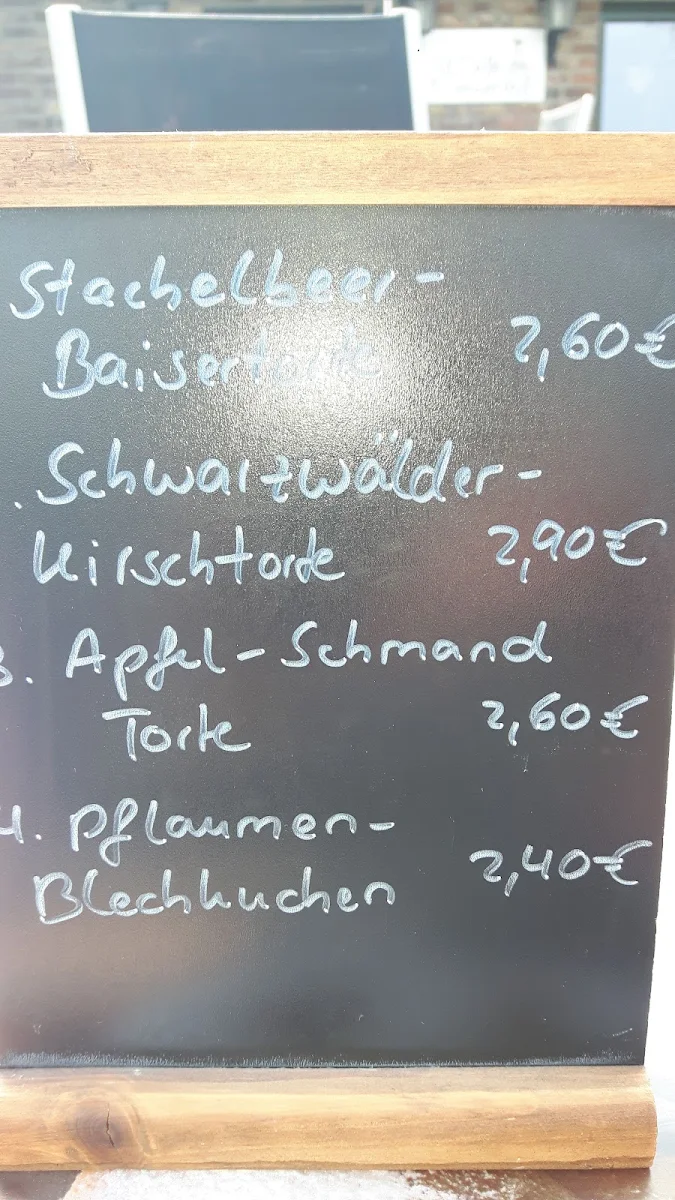 Stachelbeer-
Baisertorte 2,60€
. Schwarzwälder-
Kirschtorte 2,90€
3. Apfel-Schmand
Torte 2,60€
4. Pflaumen-
Blechkuchen 2,40€